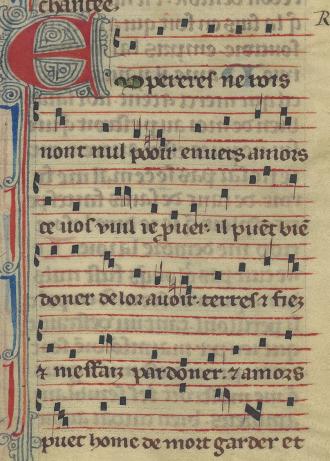 chantee.
R
Empereres ne rois
nont nul pooir enuers amors
ce uos vuil ie pruer. il puet bie&#772;
doner de lor auoir. terres &#8266; fiez
&#8266; meffaiz pardoner. &#8266; amors
puet home de mort garder et